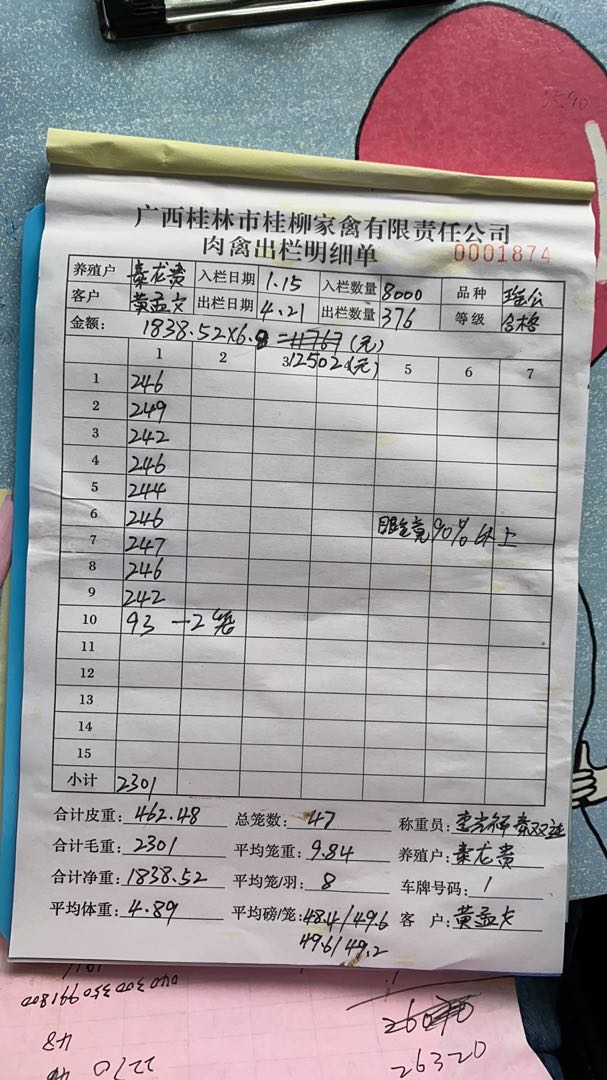 3590
广西桂林市桂柳家禽有限责任公司
肉禽出栏明细单 0001874
养殖户 秦龙贵 入栏日期 1.15 入栏数量 8000 品种 瑶公
客户 黄孟文 出栏日期 4.21 出栏数量 376 等级 合格
金额: 1838.52×6.8 = 11767(元)
12502(元)
1 2 3 5 6 7
1 246
2 249
3 242
4 246
5 244
6 246
眼镜90%以上
7 247
8 246
9 242
10 93 —2笼
11
12
13
14
15
小计 2301
合计皮重: 462.48 总笼数: 47 称重员:
合计毛重: 2301 平均笼重: 9.84 养殖户: 秦龙贵
合计净重: 1838.52 平均笼/羽: 8 车牌号码: 1
平均体重: 4.89 平均磅/笼: 48.4/49.6 客 户: 黄孟文
49.6/49.2
48
2270
26320